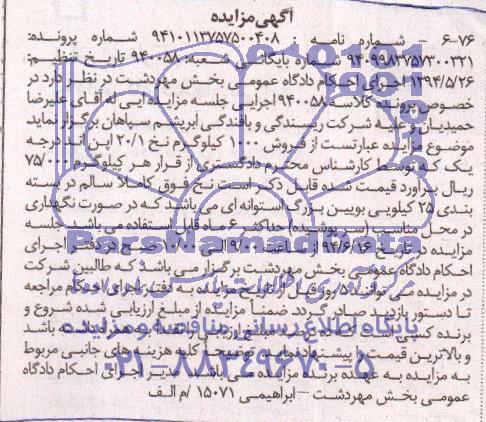 آگهی مزایده
۶-۷۶ - شماره نامه : ۹۴۱۰۱۱۳۷۵۷۵۰۰۴۰۸ شماره پرونده:
۹۴۰۹۹۸۳۷۵۷۳۰۰۳۲۱ شماره بایگانی شعبه: ۹۴۰۰۵۸ تاریخ تنظیم:
۱۳۹۴/۵/۲۶ اجرای احکام دادگاه عمومی بخش مهردشت در نظر دارد در
خصوص پرونده کلاسه ۹۴۰۰۵۸ اجرایی جلسه مزایده ایی له آقای علیرضا
حمیدیان و علیه شرکت ریسندگی و بافندگی ابریشم سپاهان برگزار نماید
موضوع مزایده عبارتست از فروش ۱۰۰۰ کیلوگرم نخ ۲۰/۱ اپن اند درجه
یک که توسط کارشناس محترم دادگستری از قرار هر کیلوگرم ۷۵/۰۰۰
ریال برآورد قیمت شده قابل ذکر است نخ فوق کاملا سالم در بسته
بندی ۲۵ کیلویی بوبین بزرگ استوانه ای می باشد که در صورت نگهداری
در محل مناسب (سرپوشیده) حداکثر ۶ ماه قابل استفاده می باشد جلسه
مزایده در تاریخ ۹۴/۶/۱۶ از ساعت ۹/۰۰ الی ۱۰/۰۰ صبح در دفتر اجرای
احکام دادگاه عمومی بخش مهردشت برگزار می باشد که طالبین شرکت
در مزایده می توانند ۵ روز قبل از تاریخ مزایده به دفتر اجرای احکام مراجعه
تا دستور بازدید صادر گردد ضمنا مزایده از مبلغ ارزیابی شده شروع و
برنده کسی است که ده درصد مبلغ ارزیابی را همراه داشته باشد
و بالاترین قیمت را پیشنهاد نماید. توضیحا کلیه هزینه های جانبی مربوط
به مزایده به عهده برنده مزایده می باشد. مدیر اجرای احکام دادگاه
عمومی بخش مهردشت - ابراهیمی ۱۵۰۷۱ /م الف
ParsNamadData
پایگاه اطلاع رسانی مناقصه و مزایده
۰۲۱-۸۸۳۴۹۶۷۰-۵